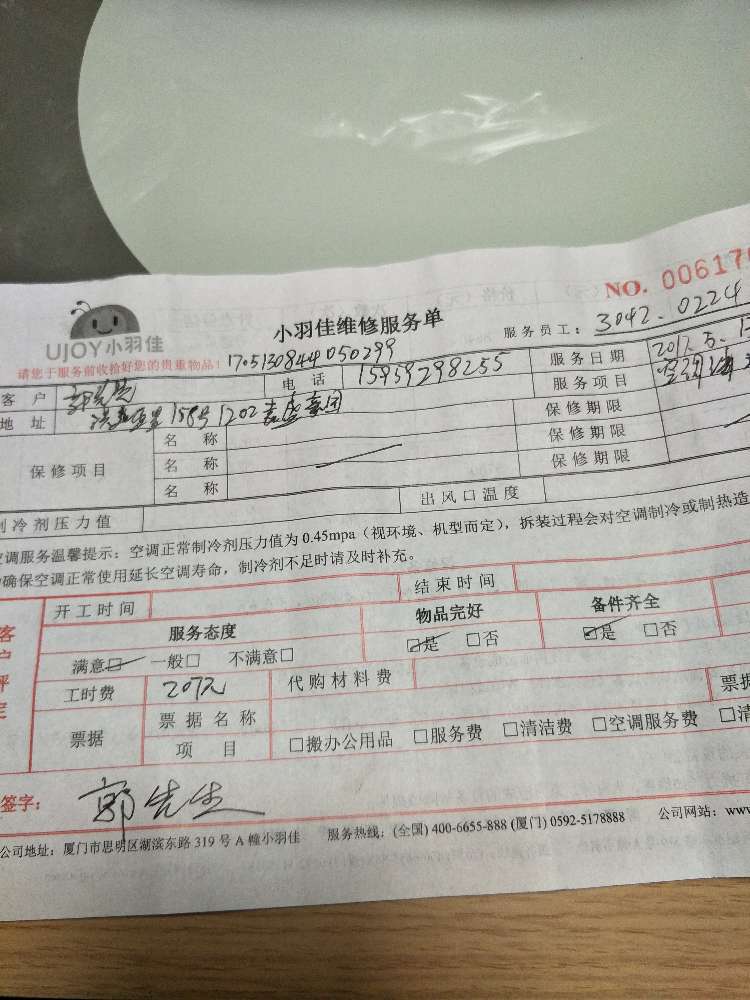 NO. 00617
UJOY小羽佳
小羽佳维修服务单
服务员工：3042.0224
请您于服务前收拾好您的贵重物品！ 1705130844050299
客 户 郭先生 电 话 15959298255 服务日期 2017.5.13
地 址 158号1202 服务项目 空调
保修项目 名 称 保修期限
名 称 保修期限
名 称 保修期限
制冷剂压力值 出风口温度
空调服务温馨提示：空调正常制冷剂压力值为 0.45mpa（视环境、机型而定），拆装过程会对空调制冷或制热造
确保空调正常使用延长空调寿命，制冷剂不足时请及时补充。
客户评定
开工时间 结束时间
服务态度 物品完好 备件齐全
满意☑ 一般□ 不满意□ ☑是 □否 ☑是 □否
工时费 207元 代购材料费 票据
票据 票据名称
项 目 □搬办公用品 □服务费 □清洁费 □空调服务费 □清
签字： 郭先生
公司地址：厦门市思明区湖滨东路 319 号 A 幢小羽佳 服务热线：(全国) 400-6655-888 (厦门) 0592-5178888 公司网站：www